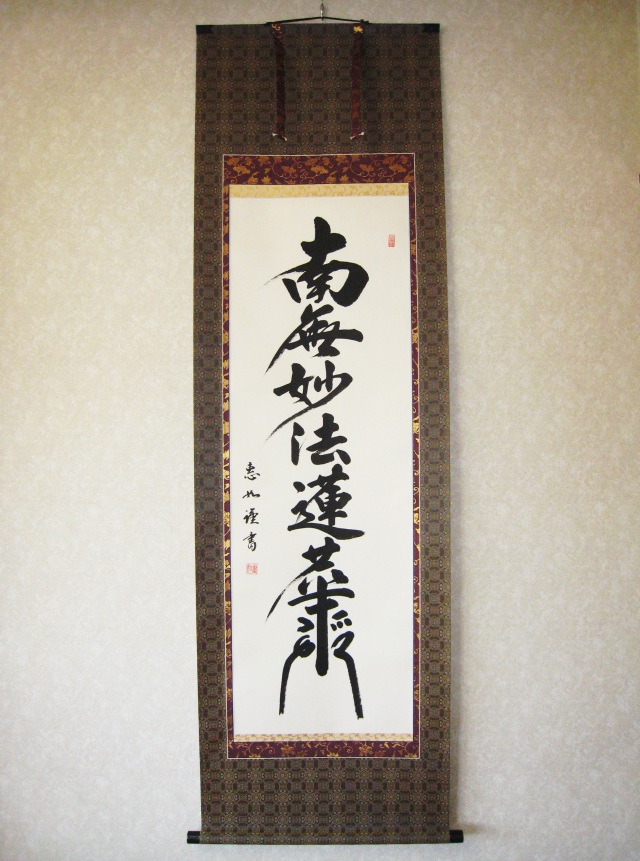 南無妙法蓮華經
恵如謹書